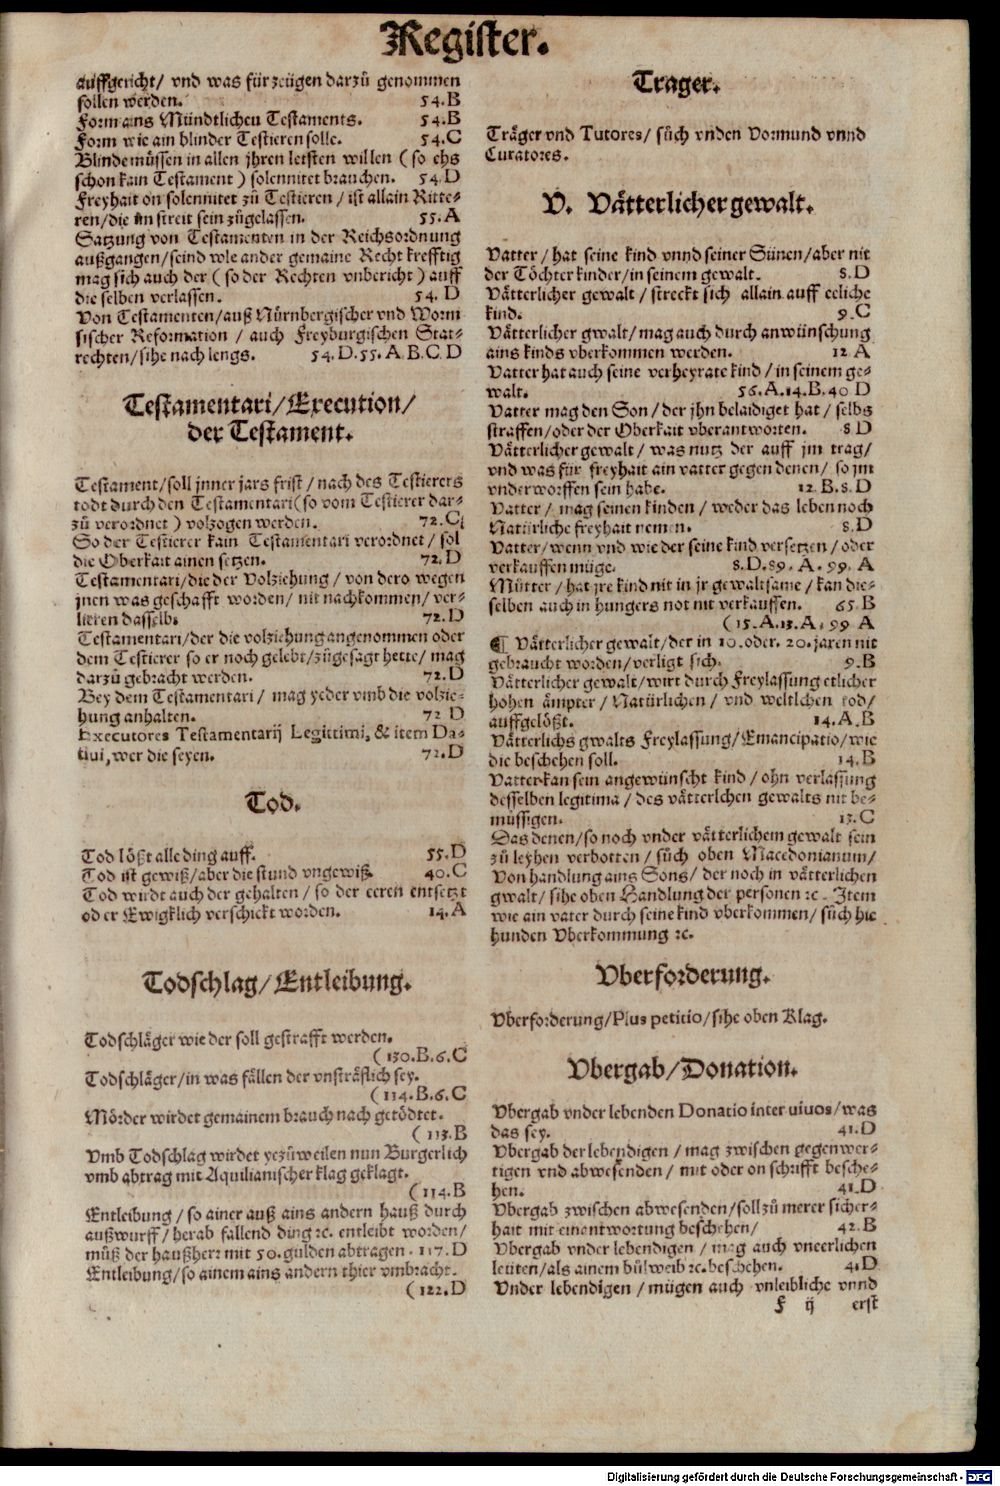 Register.
auffgericht/ vnd was für zeügen darzů genommen
sollen werden. 54.B
Form ains Mündtlichen Testaments. 54.B
Form wie ain blinder Testieren solle. 54.C
Blinde müssen in allen jhren letsten willen (so ehs
schon kain Testament) solennitet brauchen. 54.D
Freyhait on solennitet zů Testieren/ ist allain Ritte-
ren/die im streit sein zůgelassen. 55.A
Satzung von Testamenten in der Reichsordnung
außgangen/seind wie ander gemaine Recht krefftig
mag sich auch der (so der Rechten vnbericht) auff
die selben verlassen. 54.D
Von Testamenten/auß Nürnbergischer vnd Worm
sischer Reformation / auch Freyburgischen Stat-
rechten/sihe nach lengs. 54.D.55.A.B.C.D
Testamentari/Execution/
der Testament.
Testament/soll jnner jars frist/ nach des Testierers
todt durch den Testamentari(so vom Testierer dar-
zů verordnet) volzogen werden. 72.C
So der Testierer kain Testamentari verordnet/ sol
die Oberkait ainen setzen. 72.D
Testamentari/die der Volziehung/ von dero wegen
jnen was geschafft worden/ nit nachkommen/ ver-
lieren dasselb. 72.D
Testamentari/der die volziehung angenommen oder
dem Testierer so er noch gelebt/zůgesagt hette/ mag
darzů gebracht werden. 72.D
Bey dem Testamentari/ mag yeder vmb die volzie-
hung anhalten. 72 D
Executores Testamentarij Legittimi, & item Da-
tiui, wer die seyen. 72.D
Tod.
Tod lößt alle ding auff. 55.D
Tod ist gewiß/aber die stund vngewiß. 40.C
Tod wirdt auch der gehalten/ so der eeren entsetzt
oder Ewigklich verschickt worden. 14.A
Todschlag/Entleibung.
Todschläger wie der soll gestrafft werden.
(130.B.6.C
Todschläger/in was fällen der vnsträflich sey.
(114.B.6.C
Mörder wirdet gemainem brauch nach getödtet.
(113.B
Vmb Todschlag wirdet yezůweilen nun Burgerlich
vmb abtrag mit Aquilianischer klag geklagt.
(114.B
Entleibung/ so ainer auß ains andern hauß durch
außwurff/ herab fallend ding ꝛc. entleibt worden/
můß der haußherr mit 50.gulden abtragen. 117.D
Entleibung/so ainem ains andern thier vmbracht.
(122.D
Trager.
Träger vnd Tutores/ sůch vnden Vormund vnnd
Curatores.
V. Vätterlicher gewalt.
Vatter/ hat seine kind vnnd seiner Sünen/aber nit
der Töchter kinder/in seinem gewalt. 8.D
Vätterlicher gewalt/ streckt sich allain auff eeliche
kind. 9.C
Vätterlicher gwalt/ mag auch durch anwünschung
ains kinds vberkommen werden. 12.A
Vatter hat auch seine verheyrate kind/ in seinem ge-
walt. 56.A.14.B.40 D
Vatter mag den Son/ der jhn belaidiget hat/ selbs
straffen/oder der Oberkait vberantworten. 8 D
Vätterlicher gewalt/ was nutz der auff jm trag/
vnd was für freyhait ain vatter gegen denen/ so jm
vnderworffen sein habe. 12.B.8.D
Vatter/ mag seinen kinden/ weder das leben noch
Natürliche freyhait nemen. 8.D
Vatter/wenn vnd wie der seine kind versetzen/ oder
verkauffen müge. 8.D.89.A.99.A
Můtter/ hat jre kind nit in jr gewaltsame/ kan die-
selben auch in hungers not nit verkauffen. 65.B
(15.A.13.A.99 A
¶ Vätterlicher gewalt/der in 10.oder.20.jaren nit
gebraucht worden/verligt sich. 9.B
Vätterlicher gewalt/wirt durch Freylassung etlicher
hohen ämpter/ Natürlichen/ vnd weltlichen tod/
auffgelößt. 14.A.B
Vätterlichs gwalts Freylassung/Emancipatio/wie
die beschehen soll. 14.B
Vatter kan sein angewünscht kind/ ohn verlassung
desselben legitima/ des vätterlchen gewalts nit be-
müssigen. 13.C
Das denen/so noch vnder vätterlichem gewalt sein
zů leyhen verbotten/ sůch oben Macedonianum/
Von handlung ains Sons/ der noch in vätterlichen
gwalt/ sihe oben Handlung der personen ꝛc. Item
wie ain vater durch seine kind vberkommen/ sůch hie
hunden Vberkommung ꝛc.
Vberforderung.
Vberforderung/Plus petitio/sihe oben Klag.
Vbergab/Donation.
Vbergab vnder lebenden Donatio inter uiuos/was
das sey. 41.D
Vbergab der lebendigen/ mag zwischen gegenwer-
tigen vnd abwesenden/ mit oder on schrifft besche-
hen. 41.D
Vbergab zwischen abwesenden/soll zů merer sicher-
hait mit einantwortung beschehen/ 42.B
Vbergab vnder lebendigen/ mag auch vneerlichen
leüten/als ainem bůlweib ꝛc.beschehen. 41.D
Vnder lebendigen/ mügen auch vnleibliche vnnd
F ij erst
Digitalisierung gefördert durch die Deutsche Forschungsgemeinschaft - DFG